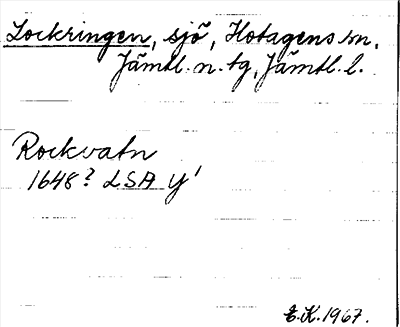 Lockringen, sjö, Hotagens sn,
Jämtl. n. tg, Jämtl. l.
Rockvatn
1648? LSA Y'
E.K. 1967.